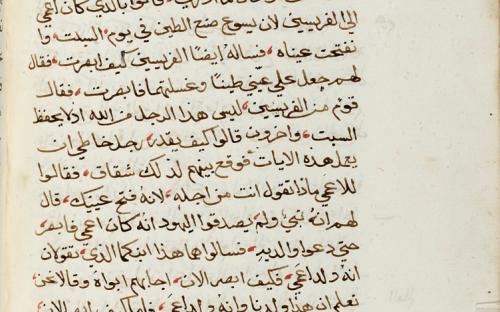 الى الفريسيين لان يسوع صنع الطين في يوم السبت وا
نفتحت عيناه فساله ايضًا الفريسين كيف ابصرت فقال
لهم جعل علي عيني طينًا وغسلتهما فابصرت فقال
قوم من الفريسيين ليس هذا الرجل من الله اذ لا يحفظ
السبت واخرون قالوا كيف يقدر رجل خاطي ان
يعمل هذه الايات فوقع بينهم لذلك شقاق فقالوا
للاعمي ماذا تقول انت من اجله لانه فتح عينيك قال
لهم انه نبي ولم يصدقوا اليهود انه كان اعمي فابصر
حتي دعوا والديه فسالوهما هذا ابنكما الذي تقولان
انه ولد اعمي فكيف ابصر الان اجابهم ابواه وقالا نحن
نعلم ان هذا ولدنا وانه ولد اعمي فاما كيف ابصر الان